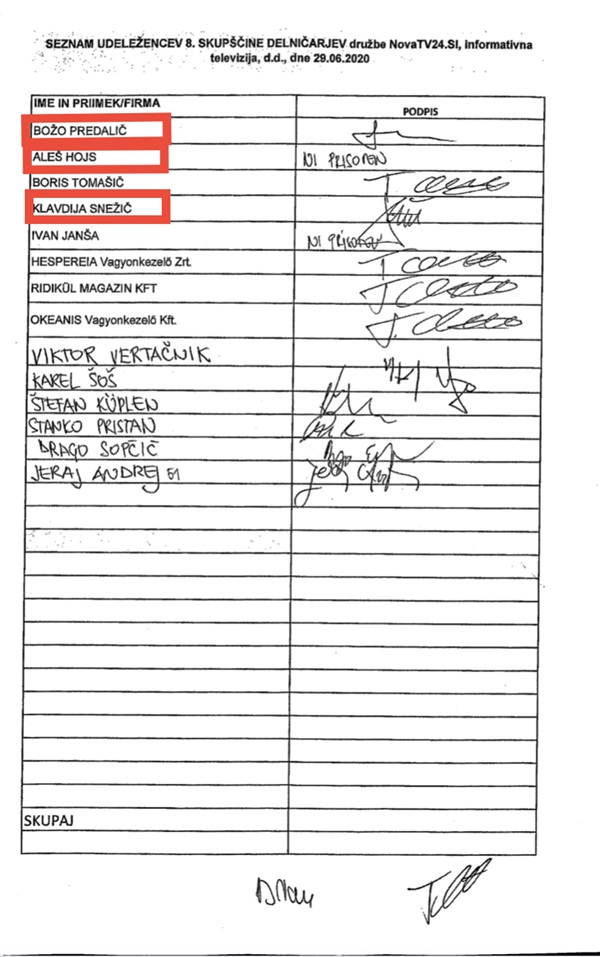 SEZNAM UDELEŽENCEV 8. SKUPŠČINE DELNIČARJEV družbe NovaTV24.SI, informativna
televizija, d.d., dne 29.06.2020
IME IN PRIIMEK/FIRMA PODPIS
BOŽO PREDALIČ
ALEŠ HOJS NI PRISOTEN
BORIS TOMAŠIČ
KLAVDIJA SNEŽIČ
IVAN JANŠA NI PRISOTEN
HESPEREIA Vagyonkezelő Zrt.
RIDIKÜL MAGAZIN KFT
OKEANIS Vagyonkezelő Kft.
VIKTOR VERTAČNIK
KAREL ŠOŠ
ŠTEFAN KÜPLEN
STANKO PRISTAN
DRAGO SOPČIČ
JERAJ ANDREJ 51
SKUPAJ